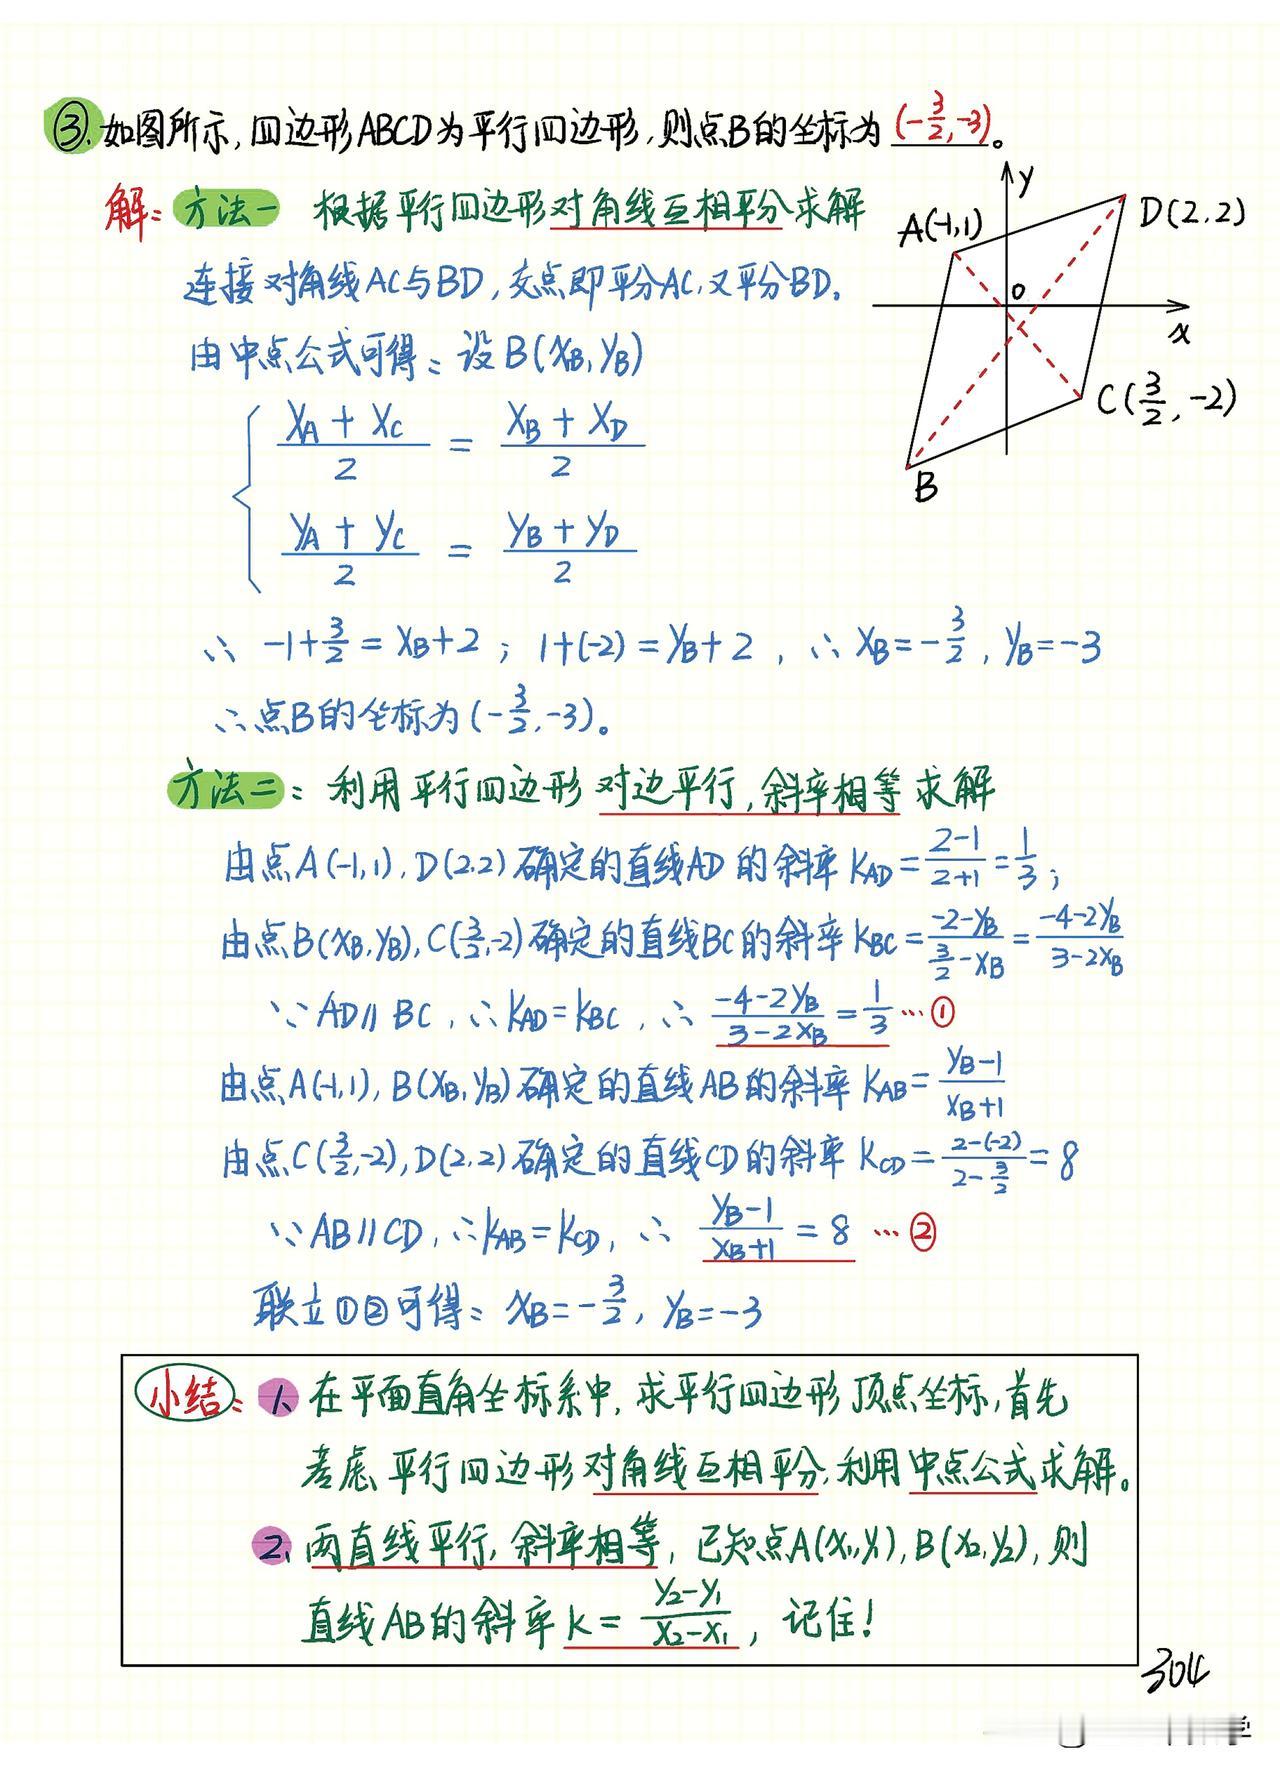 ③.如图所示,四边形ABCD为平行四边形,则点B的坐标为(-3/2,-3)。
解: 方法一 根据平行四边形对角线互相平分求解
连接对角线AC与BD,交点即平分AC,又平分BD.
由中点公式可得:设B(XB,YB)
{ (XA+XC)/2 = (XB+XD)/2
(YA+YC)/2 = (YB+YD)/2
y
A(-1,1)
D(2,2)
O
x
C(3/2,-2)
B
∴ -1+3/2=XB+2; 1+(-2)=YB+2, ∴XB=-3/2, YB=-3
∴点B的坐标为(-3/2,-3)。
方法二: 利用平行四边形对边平行,斜率相等求解
由点A(-1,1),D(2,2)确定的直线AD的斜率KAD=(2-1)/(2+1)=1/3;
由点B(XB,YB),C(3/2,-2)确定的直线BC的斜率KBC=(-2-YB)/(3/2-XB)=(-4-2YB)/(3-2XB)
∵AD∥BC,∴KAD=KBC,∴(-4-2YB)/(3-2XB)=1/3…①
由点A(-1,1),B(XB,YB)确定的直线AB的斜率KAB=(YB-1)/(XB+1)
由点C(3/2,-2),D(2,2)确定的直线CD的斜率KCD=(2-(-2))/(2-3/2)=8
∵AB∥CD,∴KAB=KCD,∴(YB-1)/(XB+1)=8…②
联立①②可得:XB=-3/2, YB=-3
小结: 1、在平面直角坐标系中,求平行四边形顶点坐标,首先
考虑平行四边形对角线互相平分,利用中点公式求解。
2、两直线平行,斜率相等,已知点A(X1,Y1),B(X2,Y2),则
直线AB的斜率K=(Y2-Y1)/(X2-X1),记住!
304